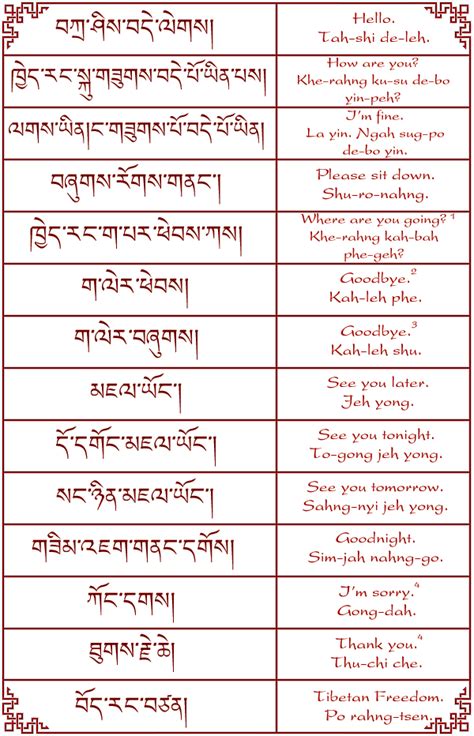 བཀྲ་ཤིས་བདེ་ལེགས།
Hello.
Tah-shi de-leh.
ཁྱེད་རང་སྐུ་གཟུགས་བདེ་པོ་ཡིན་པས།
How are you?
Khe-rahng ku-su de-bo
yin-peh?
ལགས་ཡིན།ང་གཟུགས་པོ་བདེ་པོ་ཡིན།
I'm fine.
La yin. Ngah sug-po
de-bo yin.
བཞུགས་རོགས་གནང་།
Please sit down.
Shu-ro-nahng.
ཁྱེད་རང་ག་པར་ཕེབས་ཀས།
Where are you going? 1
Khe-rahng kah-bah
phe-geh?
ག་ལེར་ཕེབས།
Goodbye.2
Kah-leh phe.
ག་ལེར་བཞུགས།
Goodbye.3
Kah-leh shu.
མཇལ་ཡོང་།
See you later.
Jeh yong.
དོ་དགོང་མཇལ་ཡོང་།
See you tonight.
To-gong jeh yong.
སང་ཉིན་མཇལ་ཡོང་།
See you tomorrow.
Sahng-nyi jeh yong.
གཟིམ་འཇག་གནང་དགོས།
Goodnight.
Sim-jah nahng-go.
ཀོང་དགས།
I'm sorry.4
Gong-dah.
ཐུགས་རྗེ་ཆེ།
Thank you.4
Thu-chi che.
བོད་རང་བཙན།
Tibetan Freedom.
Po rahng-tsen.